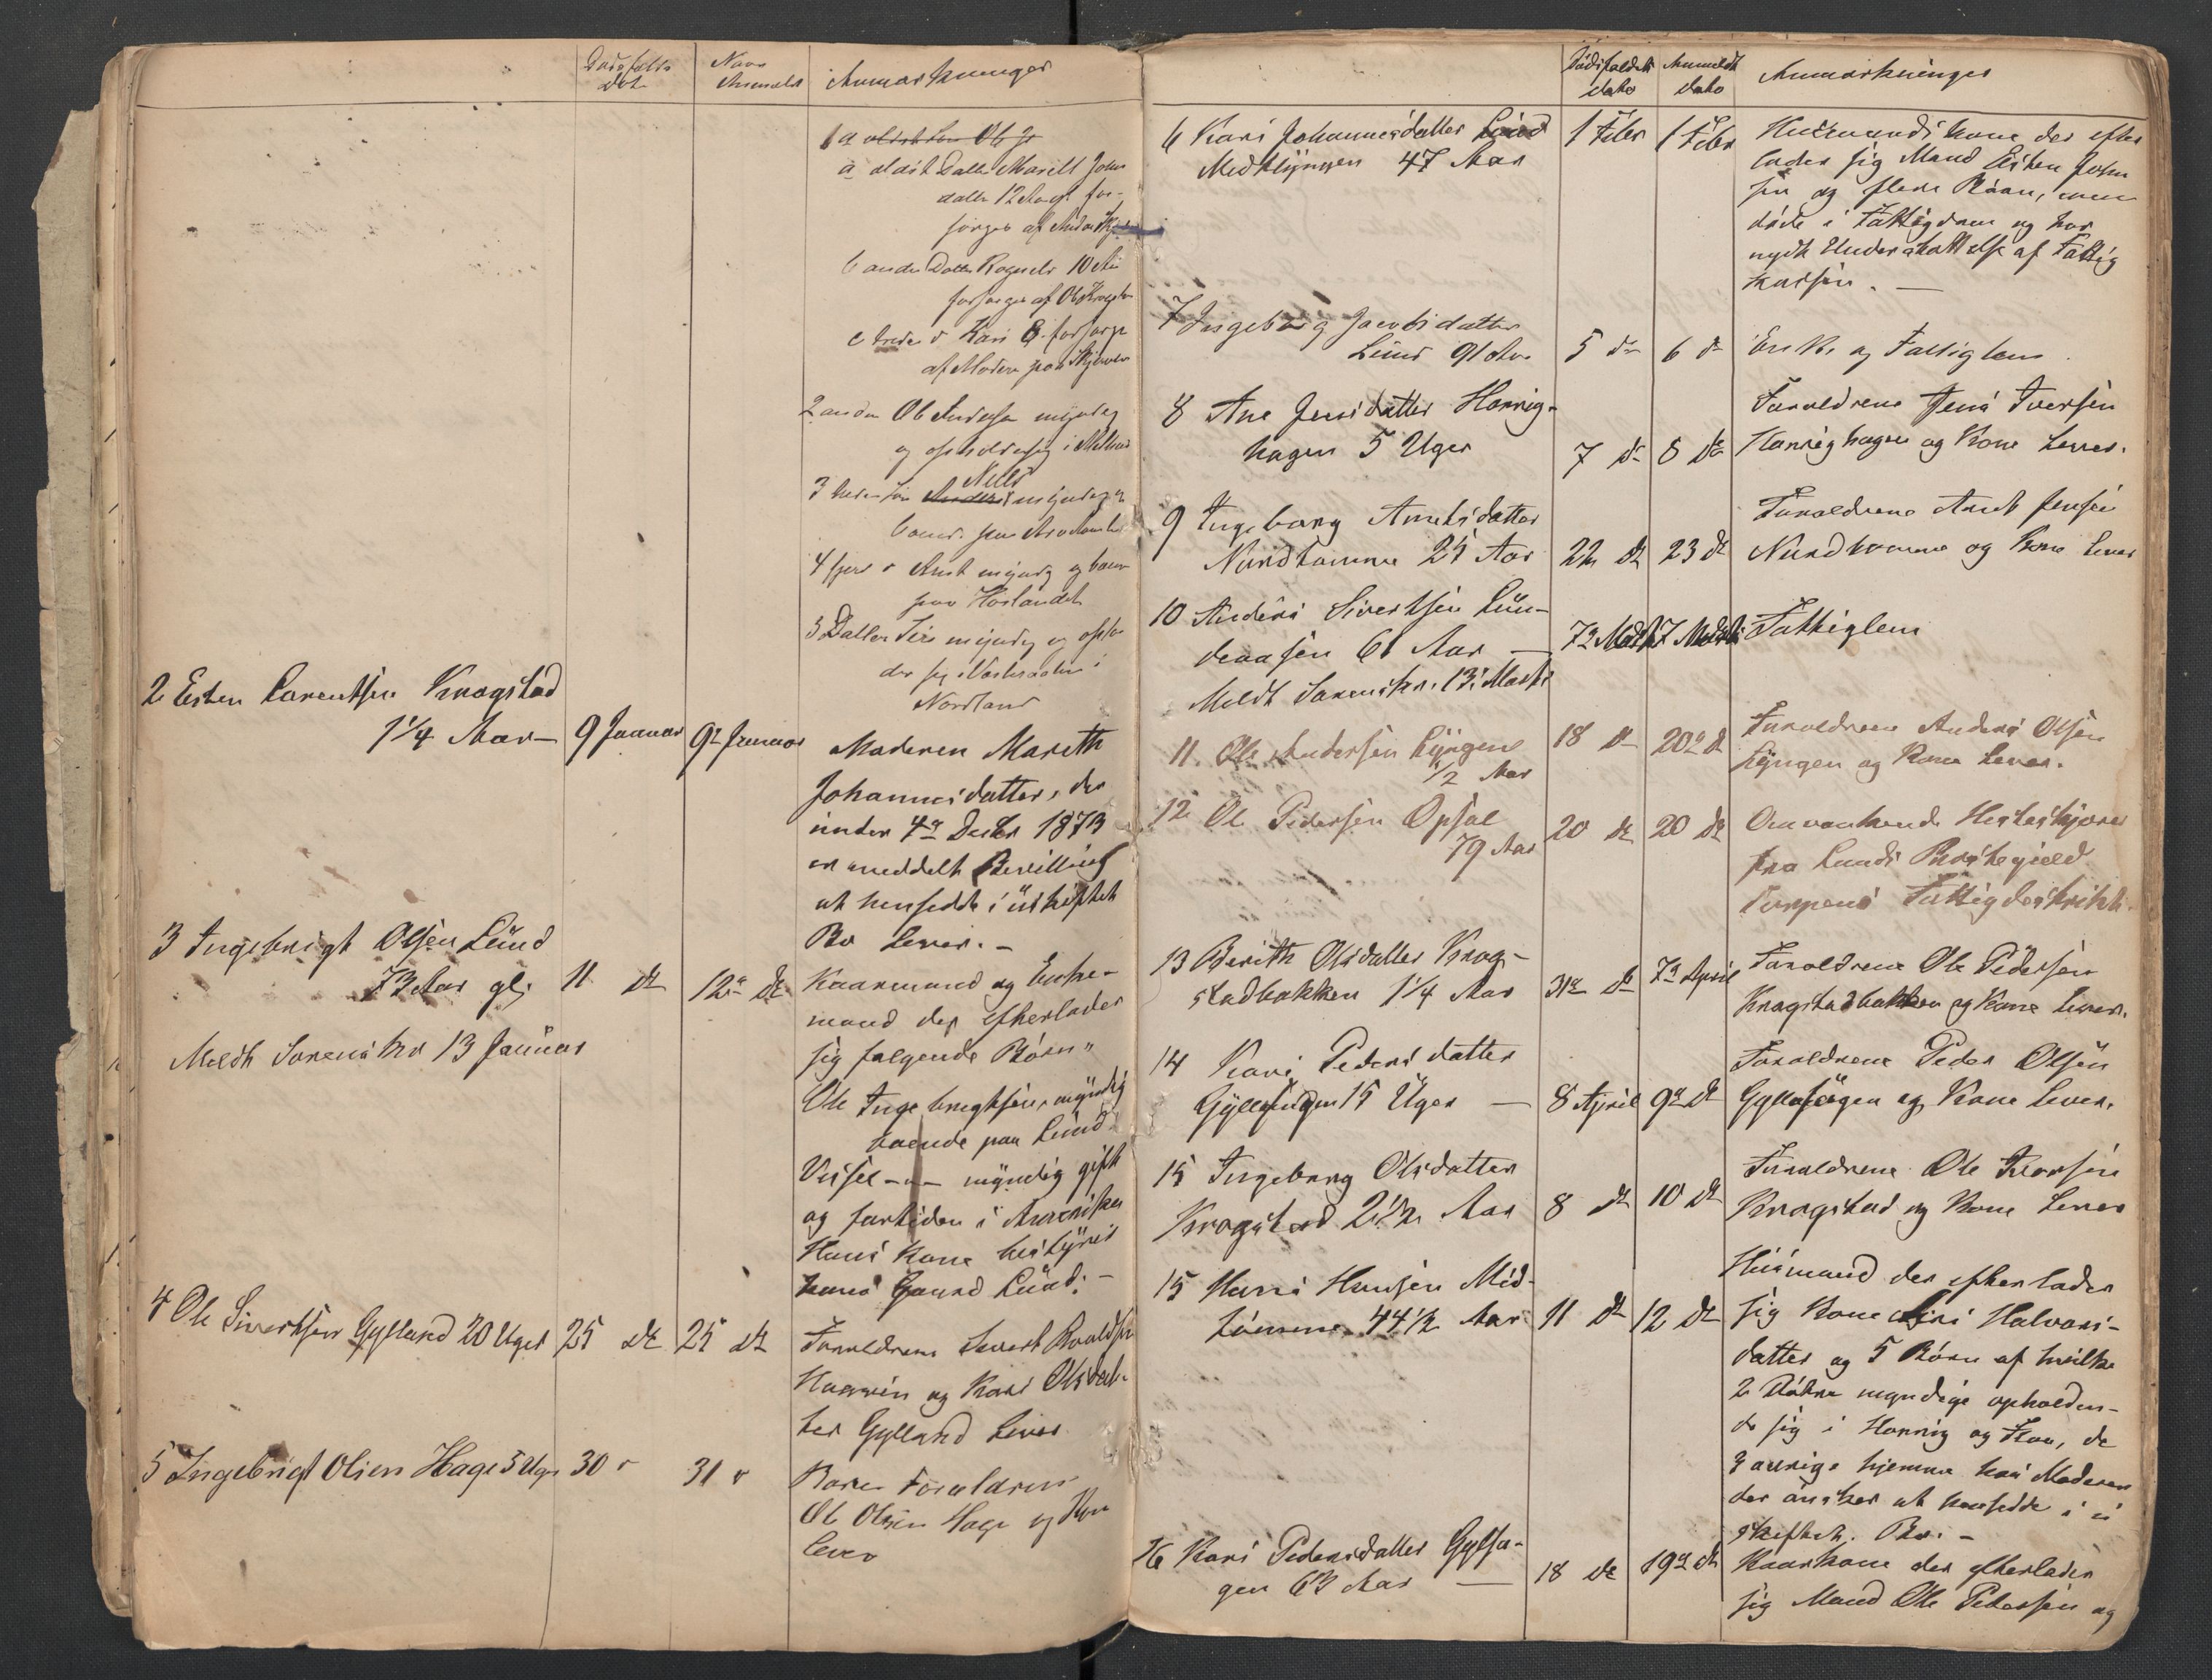 Dødsfaldts Dato
Naar Anmeldt
Anmærkninger
a ældst Datter Marith Johns
datter 12 Aar gl for-
sørges af Anders
b anden Datter Ragnild 10 Aar
forsørges af Ole Kragstad
c tredie d Kari 8 forsørges
af Moderen paa
2 anden Ole Andersen myndig
og opholder sig i
3 tredie Søn Nils myndig og
boende paa
4 fjerde d Arnt myndig og boende
paa Høslandet
5 Datter Siri myndig og ophol
der sig i Vesteraalen i
Nordland
2 Esten Lorentsen Kragstad
1 1/4 Aar — 9 Januar 9de Januar
Moderen Marith
Johannesdatter, der
under 4de Decbr 1873
er meddelt Bevilling
at hensidde i uskiftet
Bo Lever. —
3 Ingebrigt Olsen Lund
73 Aar gl. 11 Do 12te Do
Meldt Sorenskr 13 Januar
Kaarmand og Enke-
mand der efterlader
sig følgende Børn"
Ole Ingebrigtsen, myndig
boende paa Lund
Vessel -"- myndig gift
og fortiden i Amerika
Hans Kone bestyrer
hans Gaard Lund. —
4 Ole Sivertsen Gylland 20 Uger 25 Do 25 Do
Forældrene Sivert Roaldsen
og Kari Olsdat-
ter Gylland Lever
5 Ingebrigt Olsen Hage 5 Uger 30 " 31 "
Barn Forældrene
Ole Olsen Hage og Kone
lever
Dødsfaldets dato
Anmeldt dato
Anmærkninger
6 Kari Johannesdatter Lund
Medklyngen 47 Aar 1 Febr 1 Febr
Husmandskone der efter
lader sig Mand Esten John
sen og flere Børn, men
døde i Fattigdom og har
nydt Understøttelse af Fattig
kassen. —
7 Ingeborg Jacobsdatter
Lund 91 Aar 5 Do 6 Do Enke og Fattiglem.
8 Ane Jensdatter Horrig-
hagen 5 Uger 7 Do 8 Do
Forældrene Jens Iversen
Horrighagen og Kone Lever.
9 Ingeborg Arntsdatter
Nordtømme 25 Aar 22 Do 23 Do
Forældrene Arnt Jensen
Nordtømme og Kone Lever
10 Anders Sivertsen Lun-
deaasen 61 Aar — 7de Marts 7 Marts Fattiglem
Meldt Sorenskr. 13 Marts
11 Ole Andersen Lyngen
1/2 Aar 18 Do 20de Do
Forældrene Anders Olsen
Lyngen og Kone Lever.
12 Ole Pedersen Opsal
79 Aar 20 Do 20 Do
Omvankende Hesteskjærer
fra Lunds Præstegjeld
Fattigdistrikt.
13 Berith Olsdatter Krog-
stadbakken 1 1/4 Aar 31te Do 7de April
Forældrene Ole Pedersen
Krogstadbakken og Kone Lever.
14 Kari Pedersdatter
Gyllhaugen 15 Uger — 8 April 9de Do
Forældrene Peder Olsen
Gyllhaugen og Kone Lever.
15 Ingeborg Olsdatter
Krogstad 2 1/2 Aar 8 Do 10 Do
Forældrene Ole Iversen
Krogstad og Kone Lever
15 Hans Hansen Mid-
tømme 44 1/2 Aar 11 Do 12 Do
Husmand der efterlader
sig Kone Siri Halvors-
datter og 5 Børn af hvilke
2 Døtre myndige opholden-
de sig i Horrig og Flaa, de
3 øvrige hjemme hos Moderen
der ønsker at hensidde i u
skiftet. Bo. —
16 Kari Pedersdatter Gylha-
gen 63 Aar — 18 Do 19de Do
Kaarkone der efterlader
sig Mand Ole Pedersen og